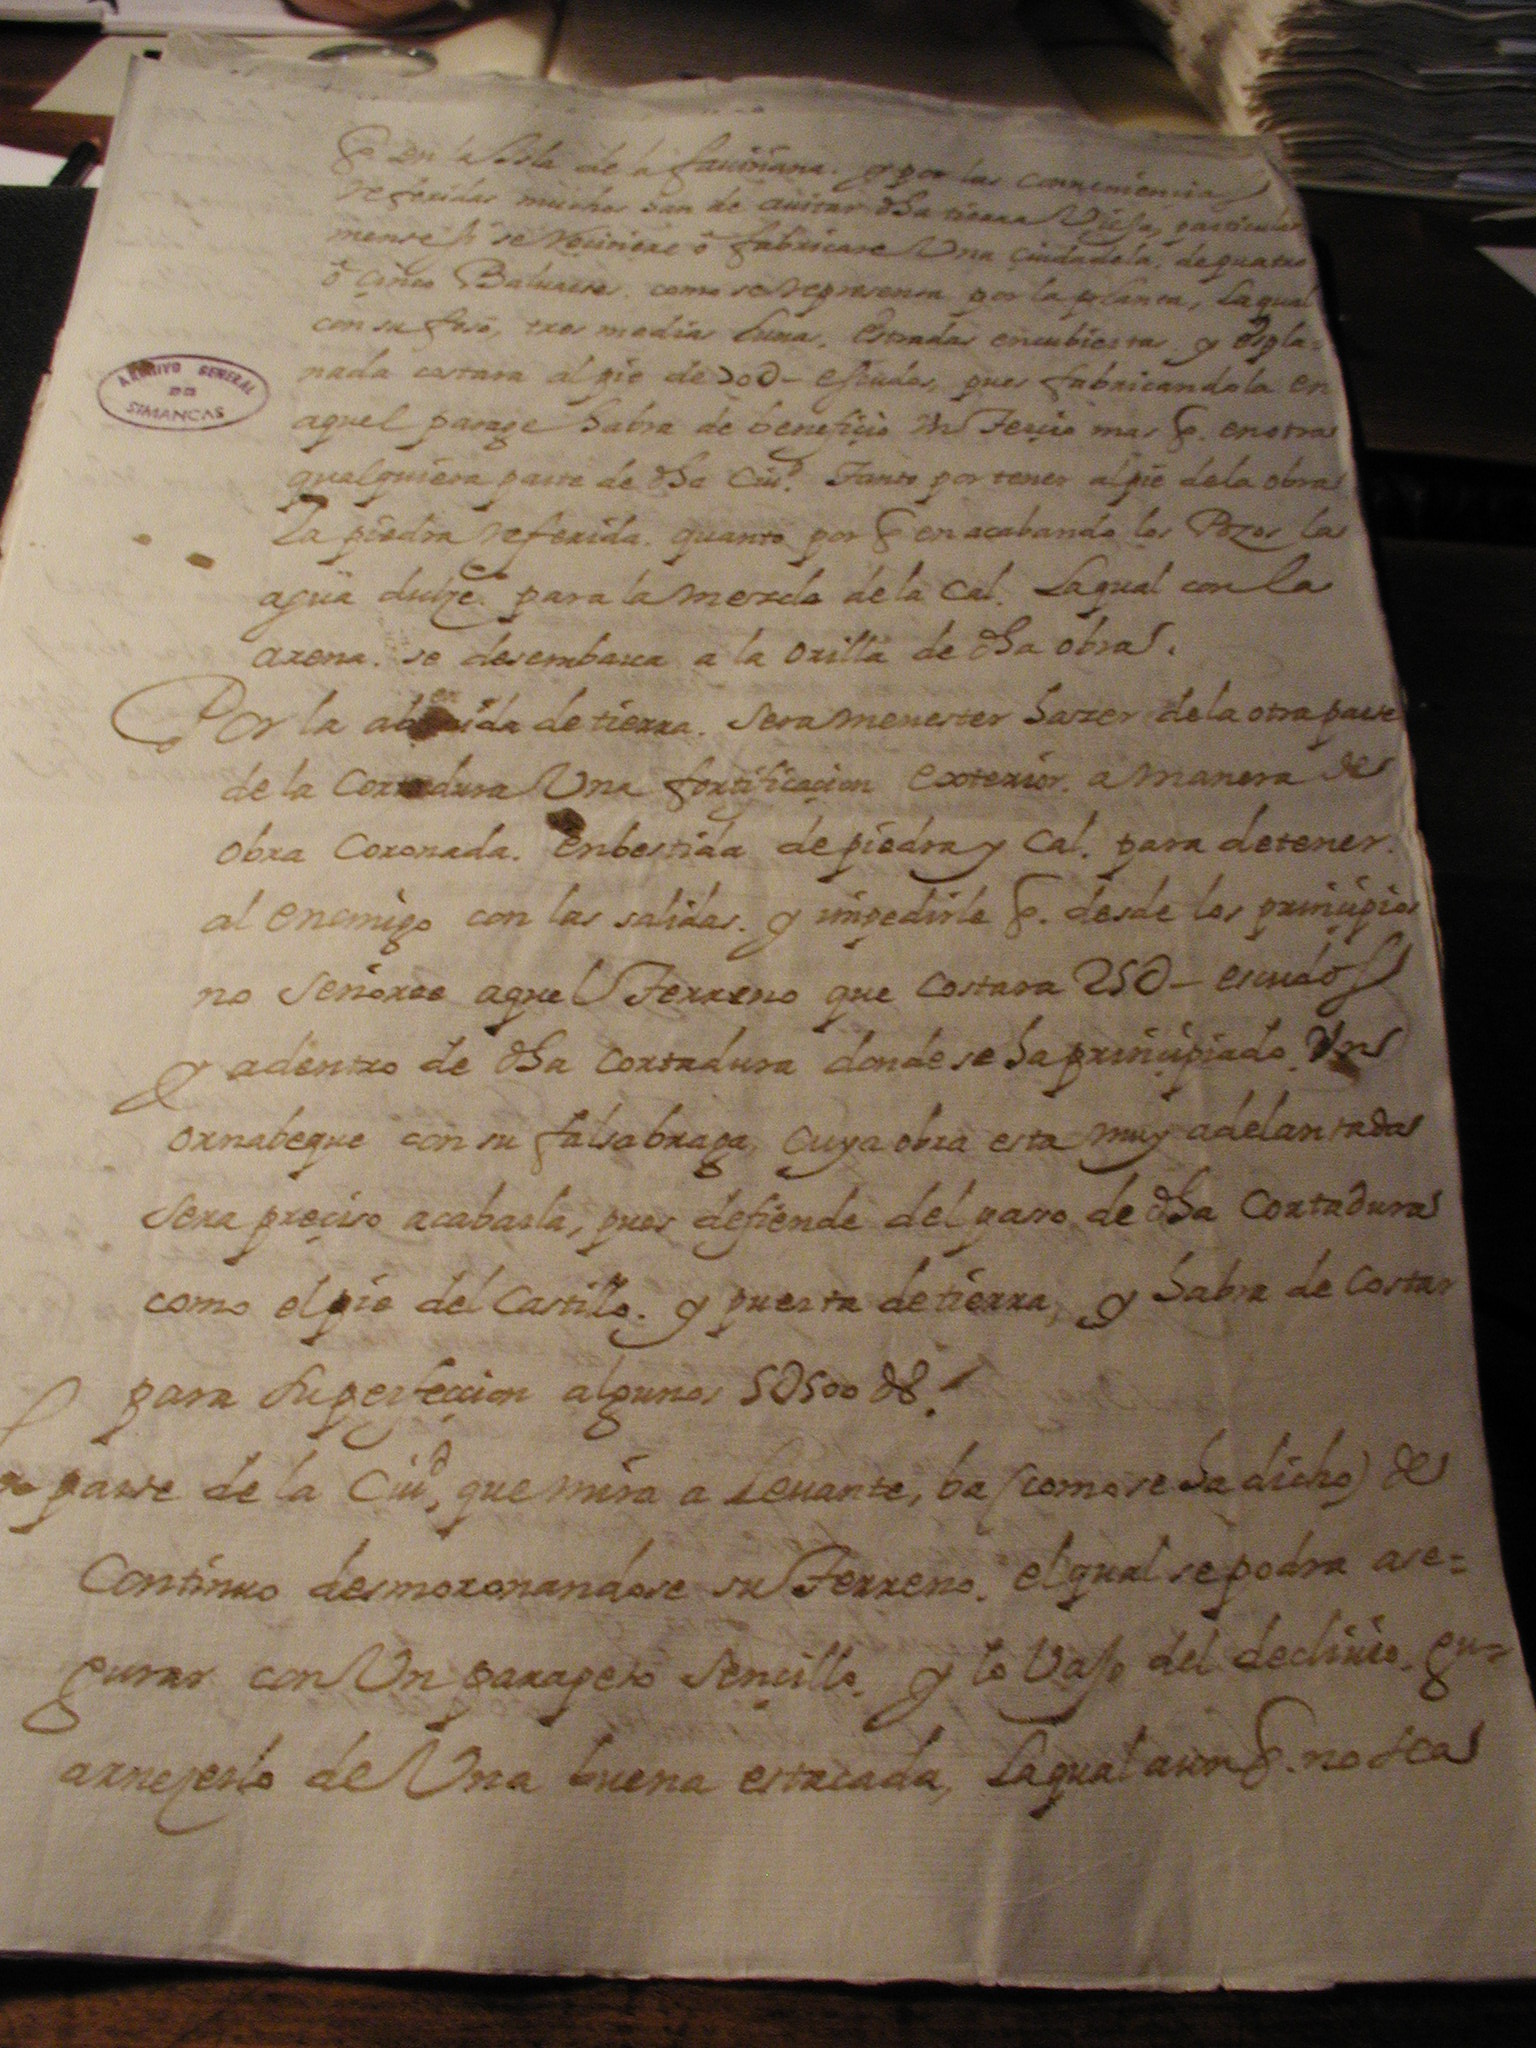 q̃. en la Isla de la fauiñana. y por las conveniencias
referidas muchos han de auitar dha tierra Vieja, particular
mente si se hiciere ô fabricare Una ciudadela. de quatro
ô çinco Baluartes. como se representa por la planta, La qual
con su foso, tres medias Lunas, estradas encubiertas y Espla=
nada costara al pie de 200- escudos, pues fabricandola en
aquel parage habra de benefiçio un Terçio mas q̃. en otra
qualquiera parte de dha Ciud. Tanto por tener al pie de la obra
La piedra referida. quanto por q̃ en acabando los Pozos la
agua dulze para la mezcla de la Cal. La qual con la
arena. se desembarca a la orilla de dha obra.
Por la abenida de tierra. Sera menester hazer de la otra parte
de la Cortadura Una fortificaçion Exterior. a manera de
obra Coronada. enbestida de piedra y Cal. para detener.
al enemigo con las salidas. y impedirle q̃. desde los prinçipios
no señoree aquel Terreno que Costara 25∂- escudos
y adentro de dha Cortadura donde se ha prinçipiado Un
ornabeque con su falsabraga, Cuya obra esta muy adelantada
Sera preçiso acabarla, pues defiende del paso de dha Cortadura
como el pie del Castillo. y puerta de tierra, y habra de Costar
para su perfecçion algunos 5∂500 es.
parte de la Ciud, que mira a Leuante, ba (como se ha dicho) de
Continuo desmoronandose su Terreno. el qual se podra ase=
gurar con Un parapeto Sençillo. y lo Vajo del decliuio. gu-
arneserlo de Una buena estacada, La qual aun q̃. no sea
ARCHIVO GENERAL
DE
SIMANCAS